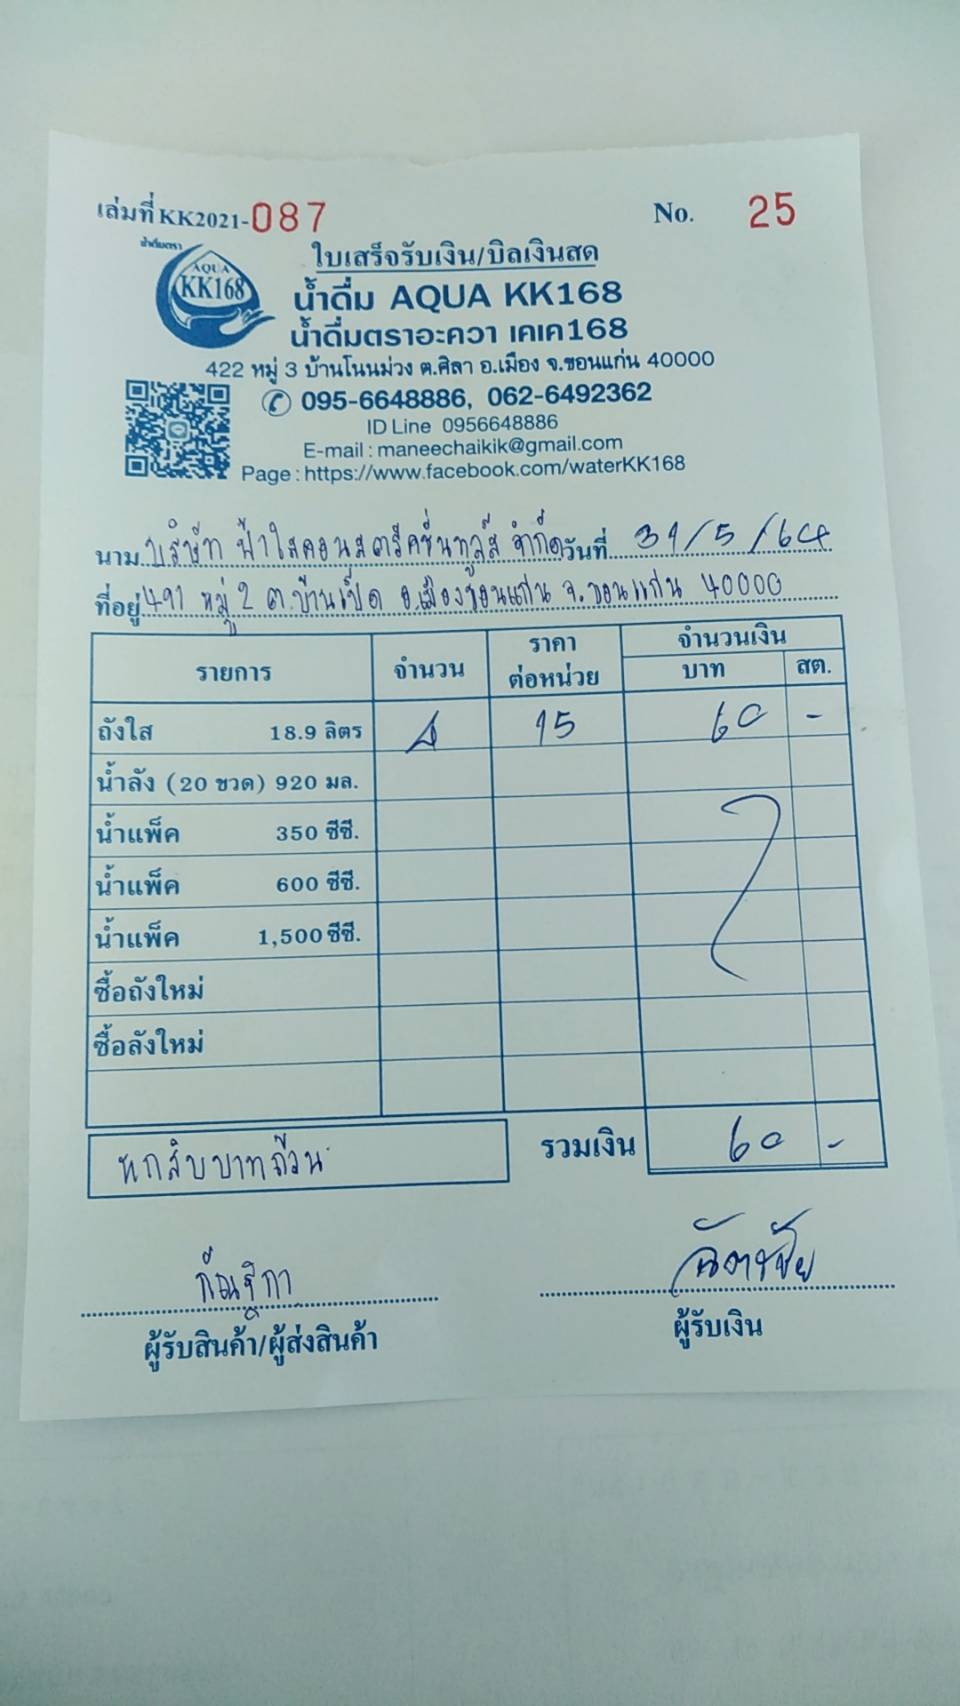 เล่มที่ KK2021-087 No. 25
น้ำดื่มตรา
AQUA
KK168
ใบเสร็จรับเงิน/บิลเงินสด
น้ำดื่ม AQUA KK168
น้ำดื่มตราอะควา เคเค168
422 หมู่ 3 บ้านโนนม่วง ต.ศิลา อ.เมือง จ.ขอนแก่น 40000
095-6648886, 062-6492362
ID Line 0956648886
E-mail : maneechaikik@gmail.com
Page : https://www.facebook.com/waterKK168
นาม บริษัท ฟ้าใสคอนสตรัคชั่นทูลส์ จำกัด วันที่ 31/5/64
ที่อยู่ 491 หมู่ 2 ต.บ้านเป็ด อ.เมืองขอนแก่น จ.ขอนแก่น 40000
รายการ จำนวน ราคาต่อหน่วย จำนวนเงิน
บาท สต.
ถังใส 18.9 ลิตร 4 15 60 -
น้ำลัง (20 ขวด) 920 มล.
น้ำแพ็ค 350 ซีซี.
น้ำแพ็ค 600 ซีซี.
น้ำแพ็ค 1,500 ซีซี.
ซื้อถังใหม่
ซื้อลังใหม่
หกสิบบาทถ้วน รวมเงิน 60 -
กัณฐิกา ฉัตรชัย
ผู้รับสินค้า/ผู้ส่งสินค้า ผู้รับเงิน